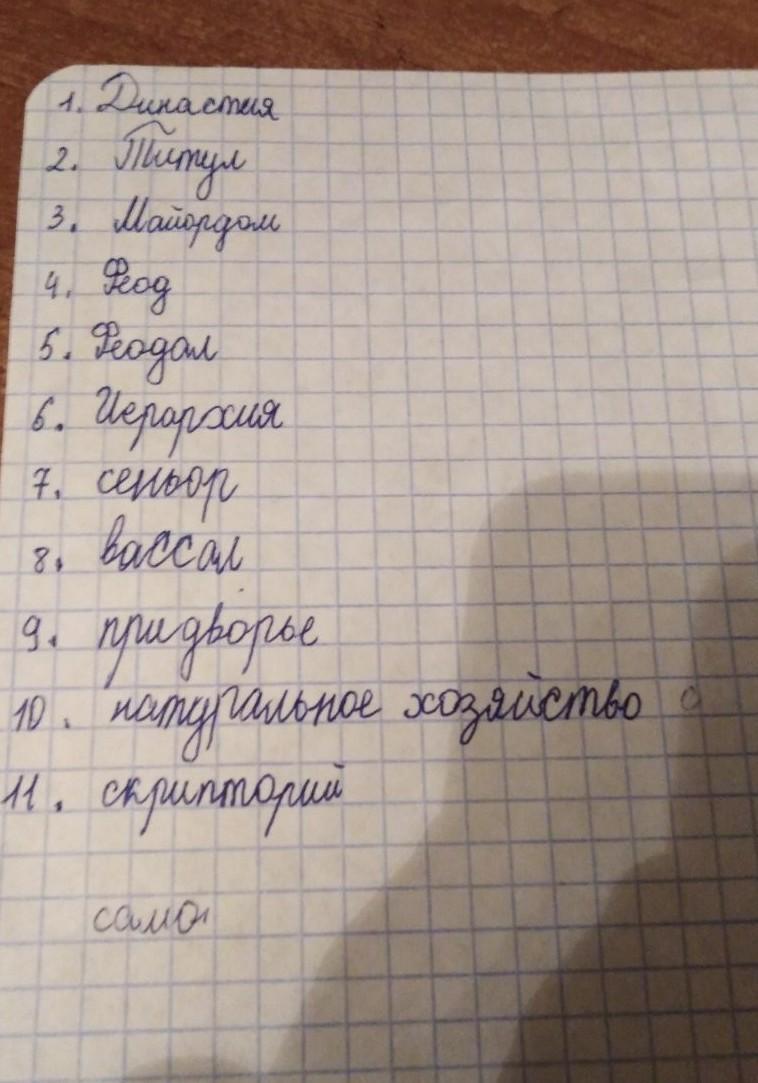 1. Династия
2. Титул
3. Майордом
4. Феод
5. Феодал
6. Иерархия
7. сеньор
8. вассал
9. придворье
10. натуральное хозяйство
11. скрипторий
само